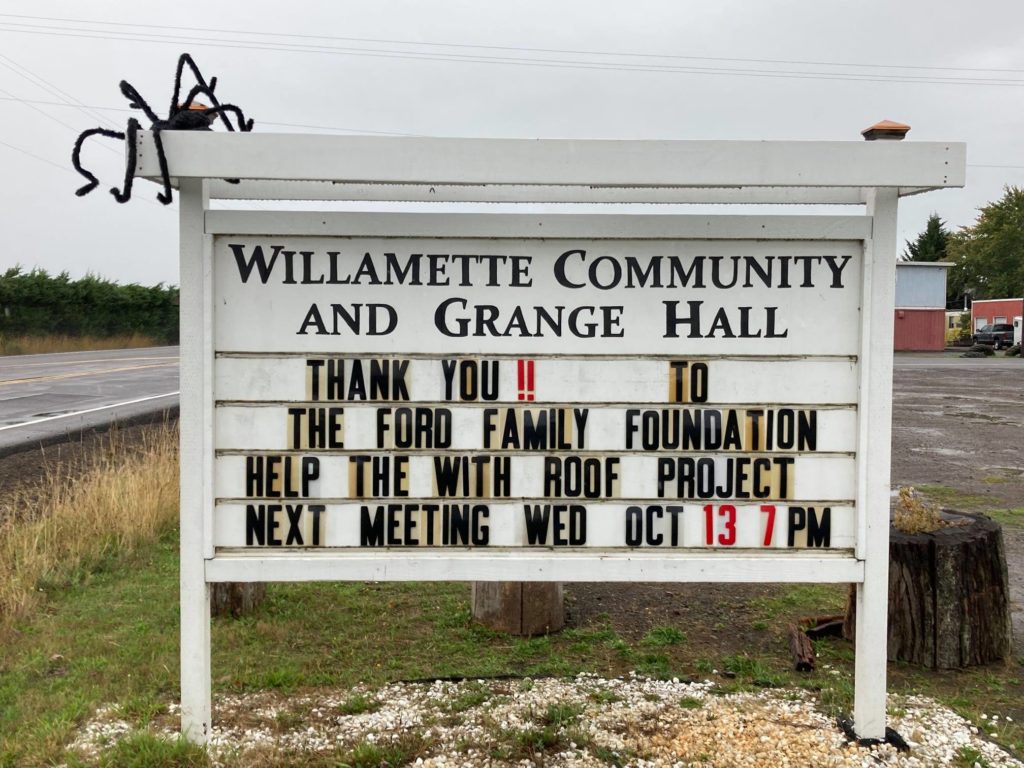 WILLAMETTE COMMUNITY
AND GRANGE HALL
THANK YOU !! TO
THE FORD FAMILY FOUNDATION
HELP THE WITH ROOF PROJECT
NEXT MEETING WED OCT 13 7 PM